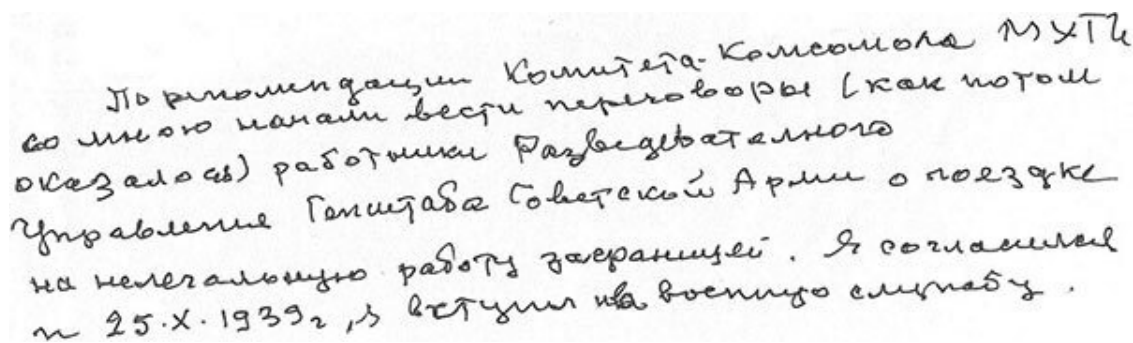 По рекомендации Комитета Комсомола МХТИ
со мною начали вести переговоры (как потом
оказалось) работники Разведывательного
Управления Генштаба Советской Армии о поездке
на нелегальную работу заграницей. Я согласился
и 25.X.1939г, я вступил на военную службу.